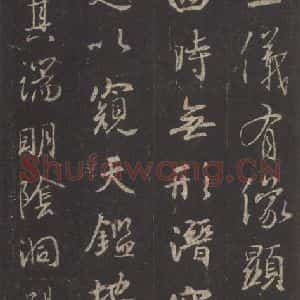 儀有像顯
四時無形潛
以窺天鑑地
其端明陰洞
Shufawang.CN